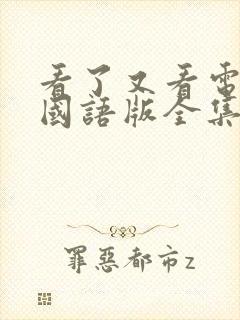 看了又看電
國語版全集
罪惡都市z